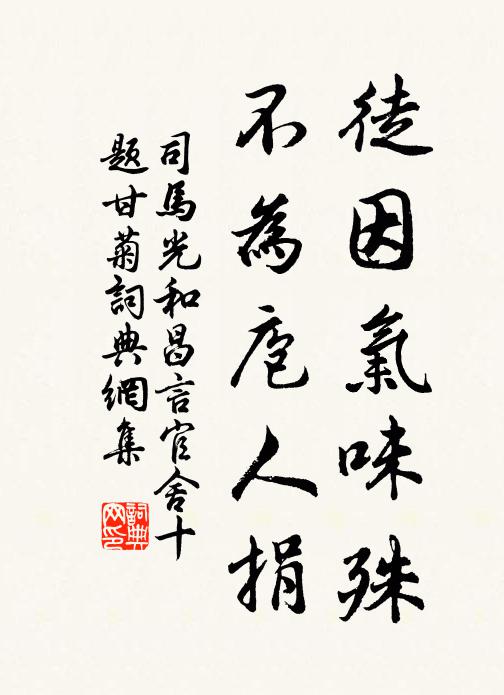 徒因氣味殊
不為庖人捐
司馬光和昌言官舍十
題甘菊詞典網集
詞典網印